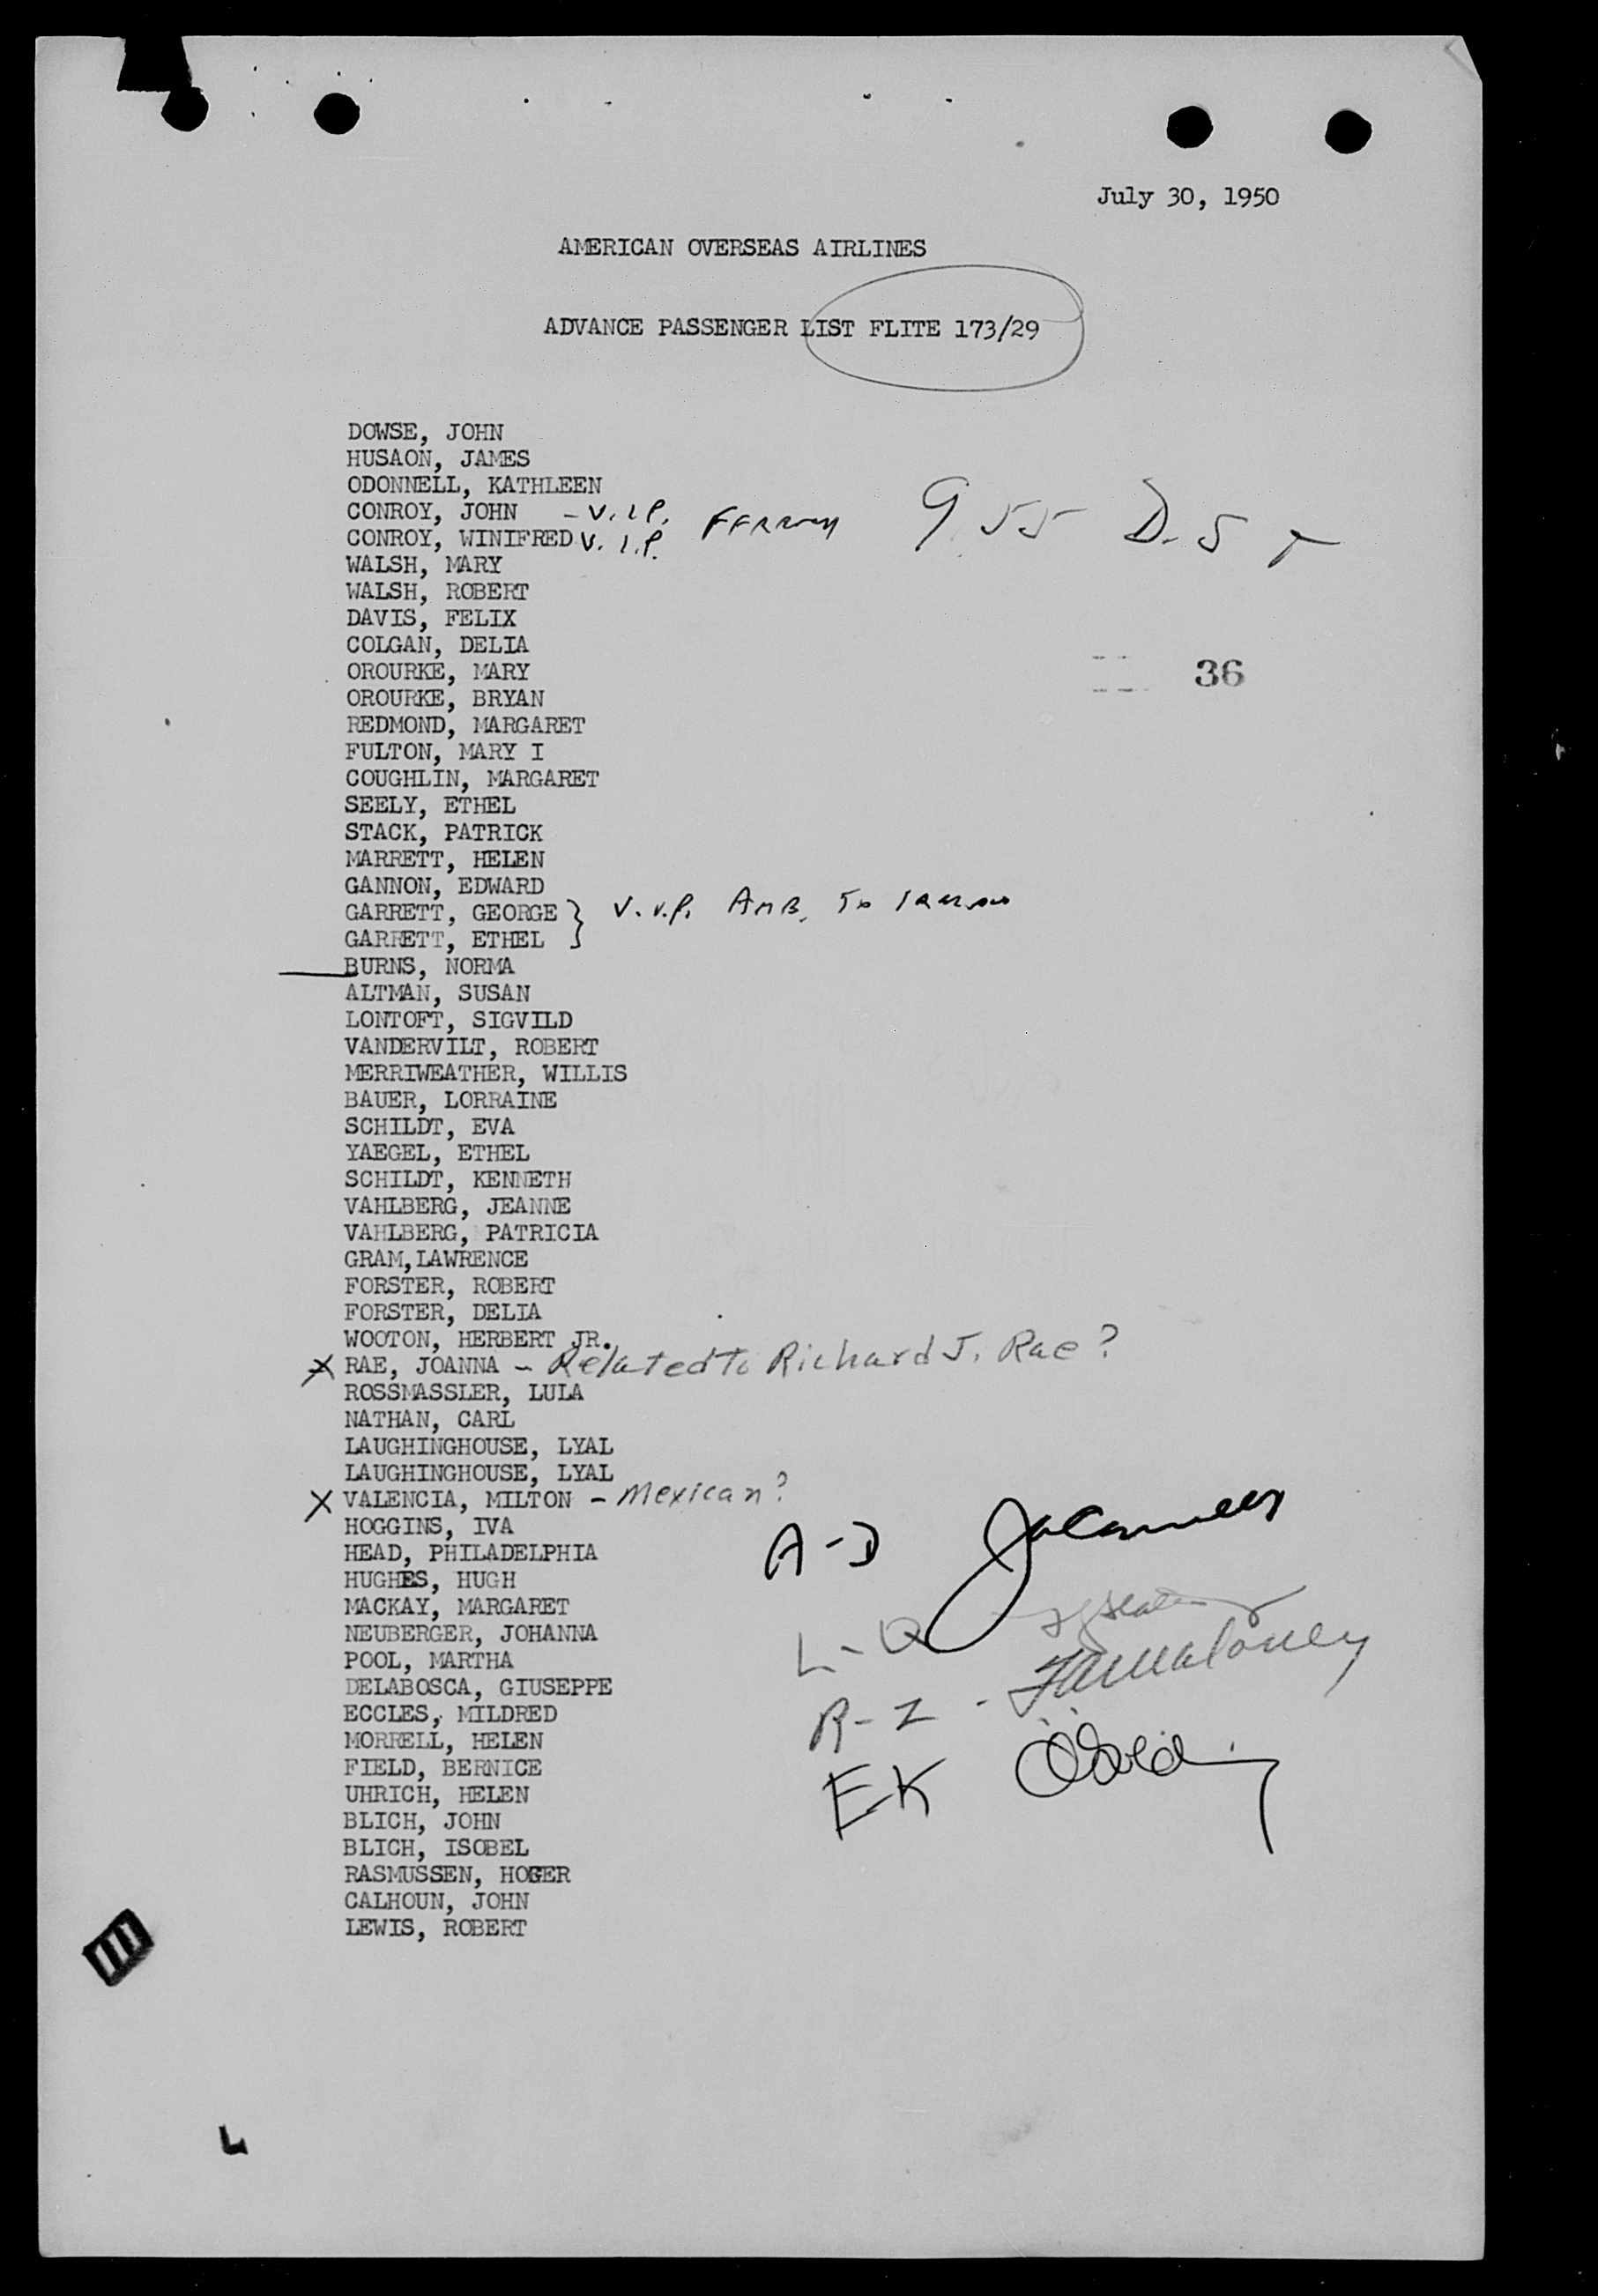 July 30, 1950
AMERICAN OVERSEAS AIRLINES
ADVANCE PASSENGER LIST FLITE 173/29
DOWSE, JOHN
HUSAON, JAMES
ODONNELL, KATHLEEN
CONROY, JOHN - V.I.P.
CONROY, WINIFRED V.I.P. 955 D.S T
WALSH, MARY
WALSH, ROBERT
DAVIS, FELIX
COLGAN, DELIA
OROURKE, MARY 36
OROURKE, BRYAN
REDMOND, MARGARET
FULTON, MARY I
COUGHLIN, MARGARET
SEELY, ETHEL
STACK, PATRICK
MARRETT, HELEN
GANNON, EDWARD
GARRETT, GEORGE } V.V.P. AMB. To
GARRETT, ETHEL
BURNS, NORMA
ALTMAN, SUSAN
LONTOFT, SIGVILD
VANDERVILT, ROBERT
MERRIWEATHER, WILLIS
BAUER, LORRAINE
SCHILDT, EVA
YAEGEL, ETHEL
SCHILDT, KENNETH
VAHLBERG, JEANNE
VAHLBERG, PATRICIA
GRAM,LAWRENCE
FORSTER, ROBERT
FORSTER, DELIA
WOOTON, HERBERT JR.
X RAE, JOANNA - Related to Richard J. Rae?
ROSSMASSLER, LULA
NATHAN, CARL
LAUGHINGHOUSE, LYAL
LAUGHINGHOUSE, LYAL
X VALENCIA, MILTON - Mexican?
HOGGINS, IVA
HEAD, PHILADELPHIA A-D
HUGHES, HUGH
MACKAY, MARGARET
NEUBERGER, JOHANNA L-Q
POOL, MARTHA
DELABOSCA, GIUSEPPE
ECCLES, MILDRED R-Z - Maloney
MORRELL, HELEN
FIELD, BERNICE
UHRICH, HELEN E-K
BLICH, JOHN
BLICH, ISOBEL
RASMUSSEN, HOGER
CALHOUN, JOHN
LEWIS, ROBERT